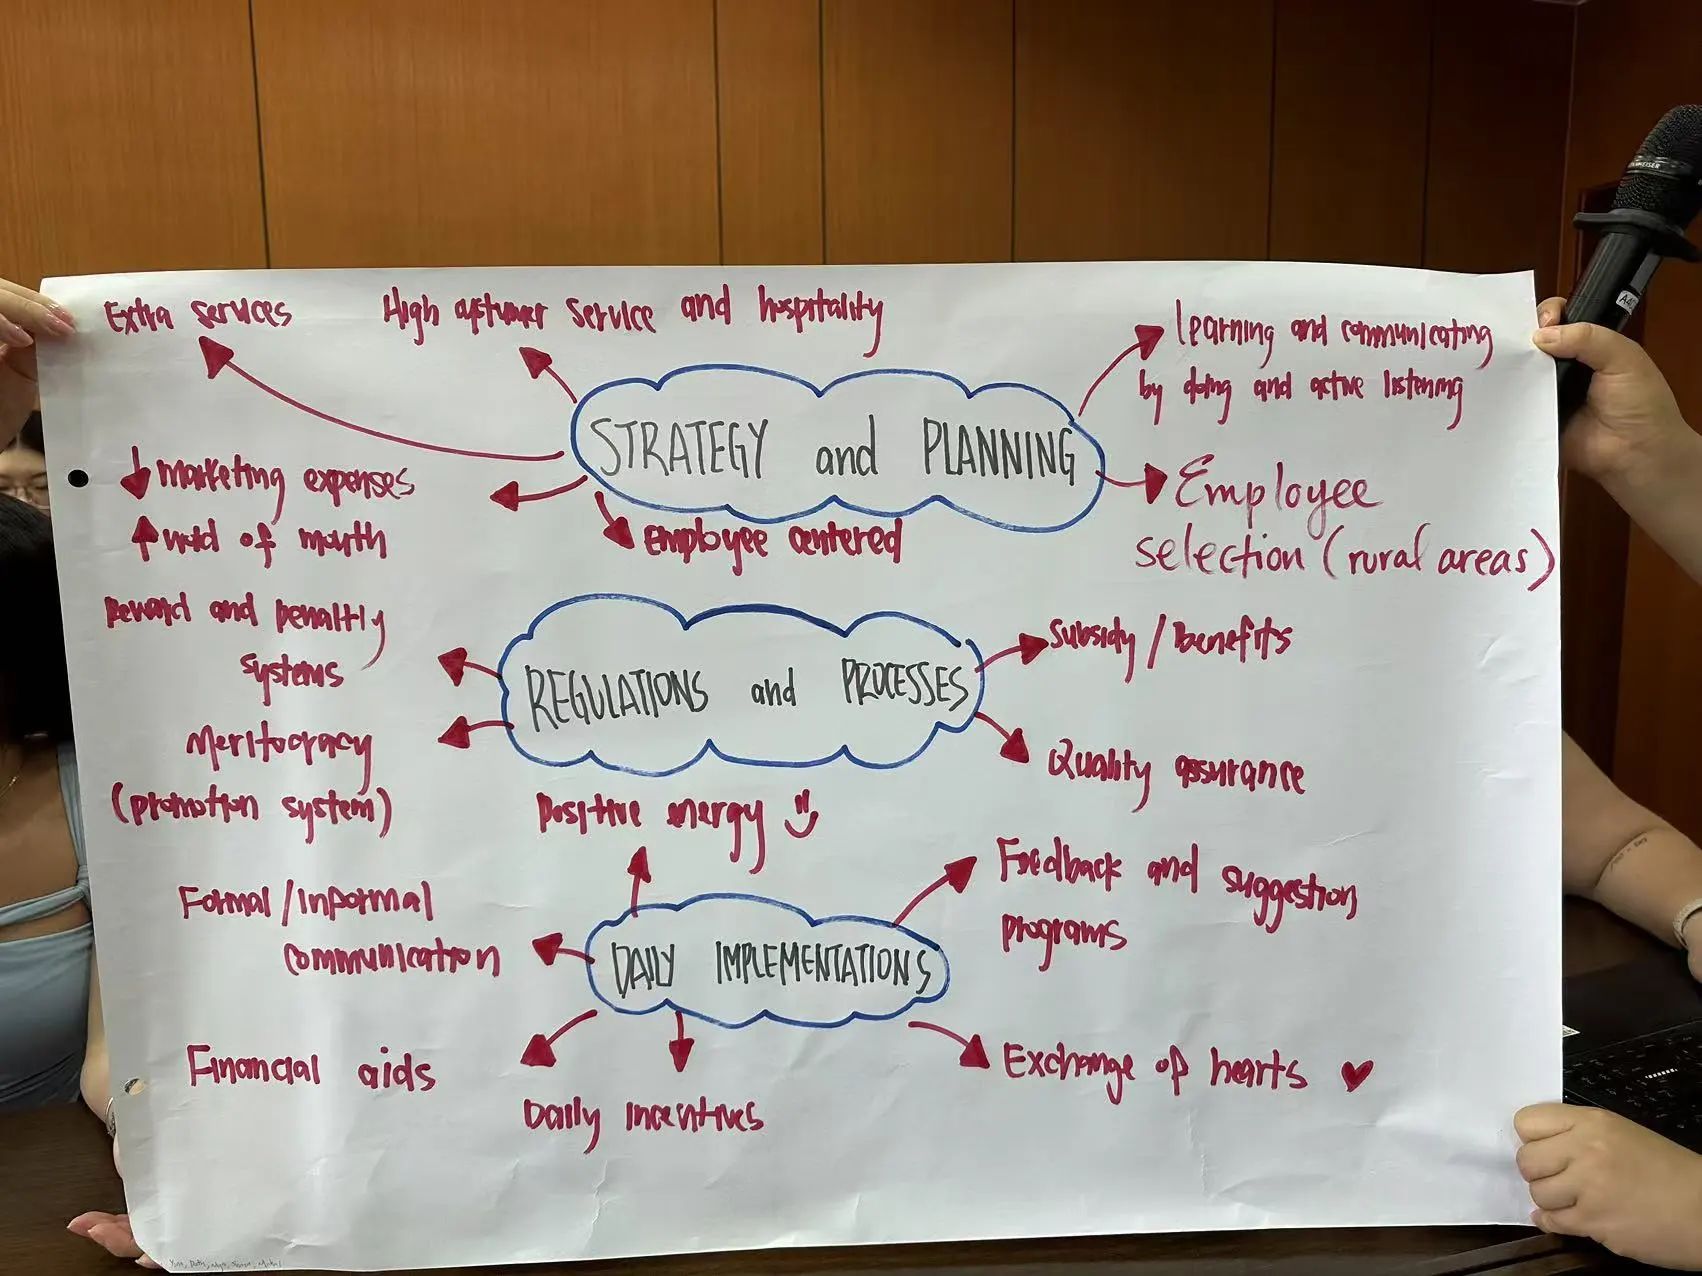 Extra services
High customer service and hospitality
learning and communicating
by doing and active listening
STRATEGY and PLANNING
↓ marketing expenses
↑ word of mouth
Employee centered
Employee
selection (rural areas)
Reward and penaltly
systems
Subsidy / Benefits
REGULATIONS and PROCESSES
Meritocracy
(promotion system)
Quality assurance
Positive energy
Feedback and suggestion
programs
Formal / Informal
communication
DAILY IMPLEMENTATIONS
Financial aids
Daily incentives
Exchange of hearts ♥